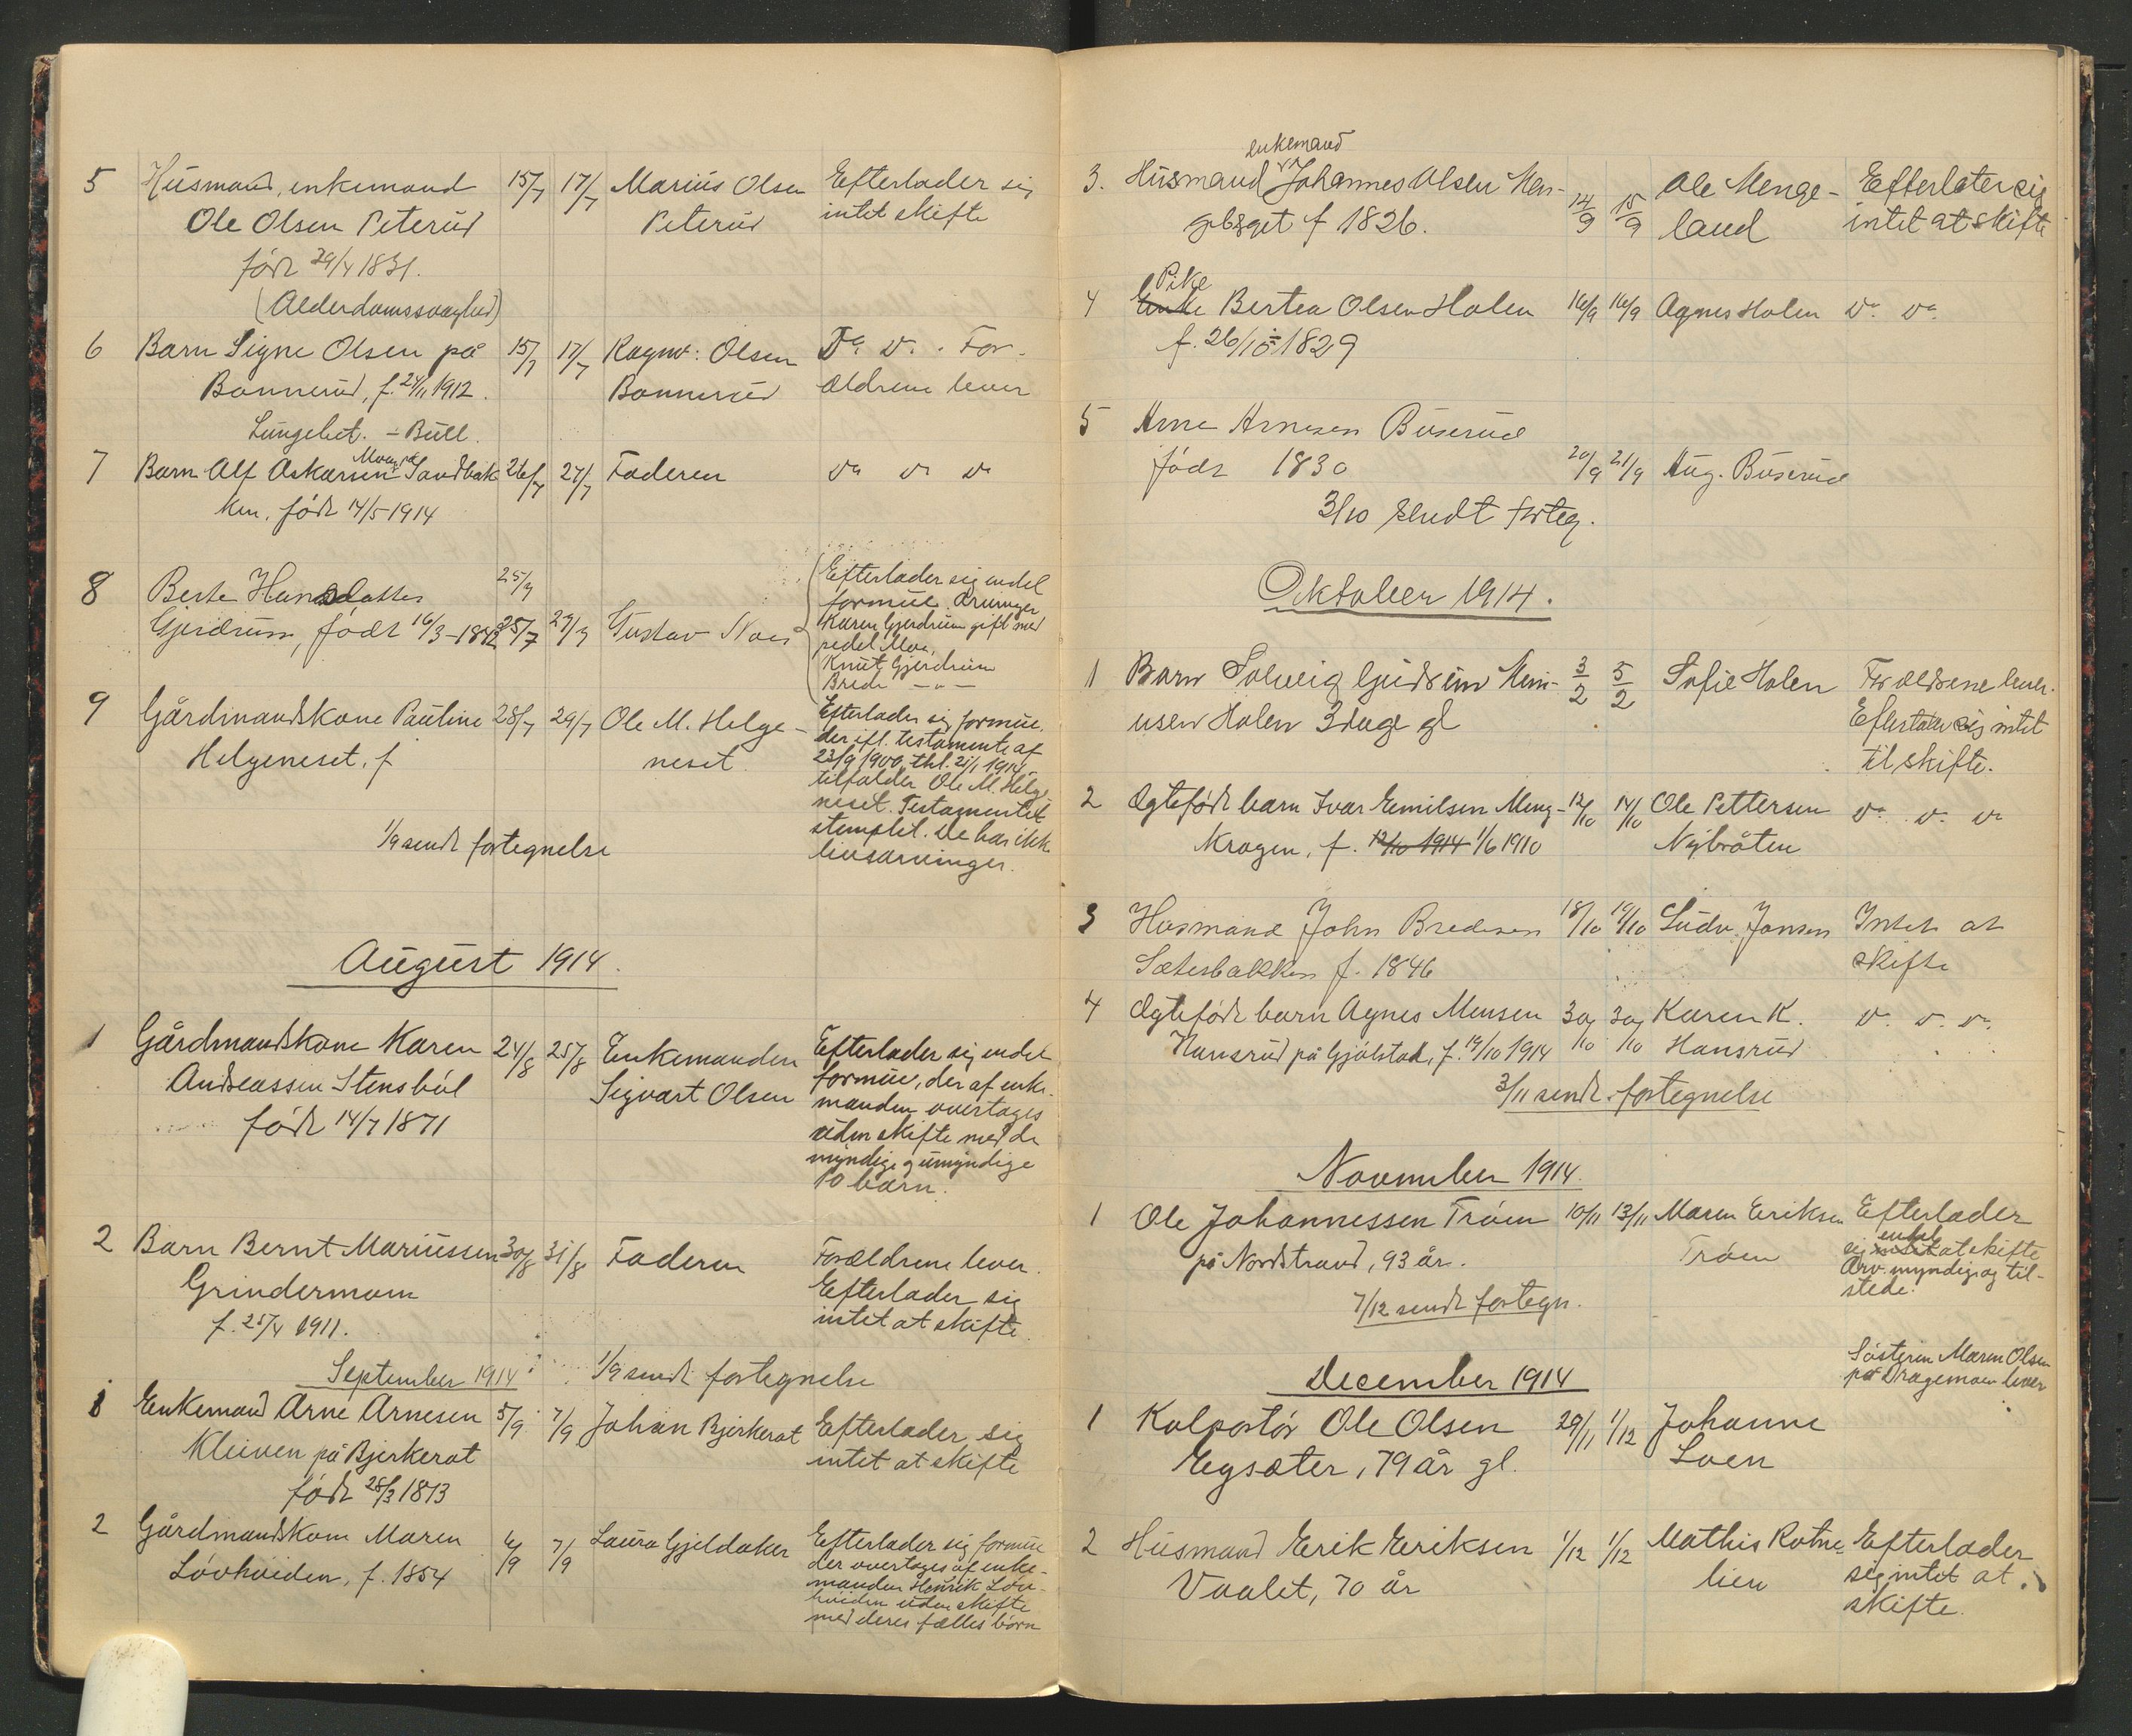 5 Husmand, enkemand 15/7 17/7 Marius Olsen Efterlader sig
Ole Olsen Peterud Peterud intet skifte
født 29/4 1831.
(Alderdomssvaghed)
6 Barn Signe Olsen på 15/7 17/7 Ragnv: Olsen Do. Do. For-
Bonnerud, f. 24/11 1912. Bonnerud ældrene lever
Lungebet. - Bull.
7 Barn Alf Oskarsen Sandbak- 26/7 27/7 Faderen Do Do Do
ken, født 14/5 1914
8 Berte Hansdatter 25/7
Gjerdrum, født 16/3-1842 25/7 27/7 Gustav Noes
Efterlader sig endel
formue. Arvinger
Karen Gjerdrum gift med
pedel Moe,
Knut Gjerdrum
Brede -"-
9 Gårdmandskone Pauline 28/7 29/7 Ole M. Helge-
Helgeneset, f neset
Efterlader sig formue.
der ifl. testamente af
23/9 1900, thl. 21/1 1914
tilfalder Ole M. Helge
neset. Testamentet
stemplet. De har ikke
livsarvinger.
1/9 sendt fortegnelse
August 1914.
1 Gårdmandskone Karen 24/8 25/8 Enkemanden Efterlader sig endel
Andreassen Stensbøl Sigvart Olsen formue, der af enke-
født 14/7 1871 manden overtages
uden skifte med de
myndige og umyndige
10 barn.
2 Barn Bernt Mariussen 30/8 31/8 Faderen Forældrene lever.
Grindermoen Efterlader sig
f. 25/4 1911. intet at skifte.
September 1914 1/9 sendt fortegnelse
1 Enkemand Arne Arnesen 5/9 7/9 Johan Bjerkerot Efterlader sig
Kleiven på Bjerkerot intet at skifte
født 28/3 1873
2 Gårdmandskone Maren 6/9 7/9 Laura Gjeldaker Efterlader sig formue
Løvhøiden, f. 1854 der overtages af enke-
manden Henrik Løv-
høiden uden skifte
med deres fælles børn
enkemand
3. Husmand Johannes Olsen Men- 14/9 15/9 Ole Menge- Efterlater sig
f 1826. land intet at skifte
Pike
4 Enke Bertea Olsen Holen 16/9 16/9 Agnes Holen Do Do
f. 26/10 1829
5 Arne Arnesen Buserud
født 1830 20/9 21/9 Aug. Buserud
3/10 sendt forteg.
Oktober 1914.
1 Barn Solveig Gudrun Men- 3/2 5/2 Sofie Holen Forældrene lever.
usen Holen 3 dage gl Efterlader sig intet
til skifte.
2 Ægtefødt barn Ivar Emilsen Meng- 12/10 14/10 Ole Pettersen Do. Do. Do
Krogen, f. 12/10 1914 1/6 1910 Nybråten
3 Husmand John Bredesen 18/10 19/10 Ludv. Jansen Intet at
Sæterbakken f. 1846 skifte
4 Ægtefødt barn Agnes Mensen 30/10 30/10 Karen K. Do. Do. Do.
Hansrud på Gjølstad, f. 19/10 1914 Hansrud
3/11 sendt fortegnelse
November 1914.
1 Ole Johannessen Trøen 10/11 13/11 Maren Eriksen Efterlader
på Nordstrand, 93 år. Trøen sig intet at skifte
Arv. myndige og til-
stede.
7/12 sendt fortegn.
Søsteren Maren Olsen
på Dragemoen lever
December 1914
1 Kolportør Ole Olsen 29/11 1/12 Johanne
Egsæter, 79 år gl. Loen
2 Husmand Erik Eriksen 1/12 1/12 Mathis Rotne- Efterlader
Vaalet, 70 år lien sig intet at
skifte.